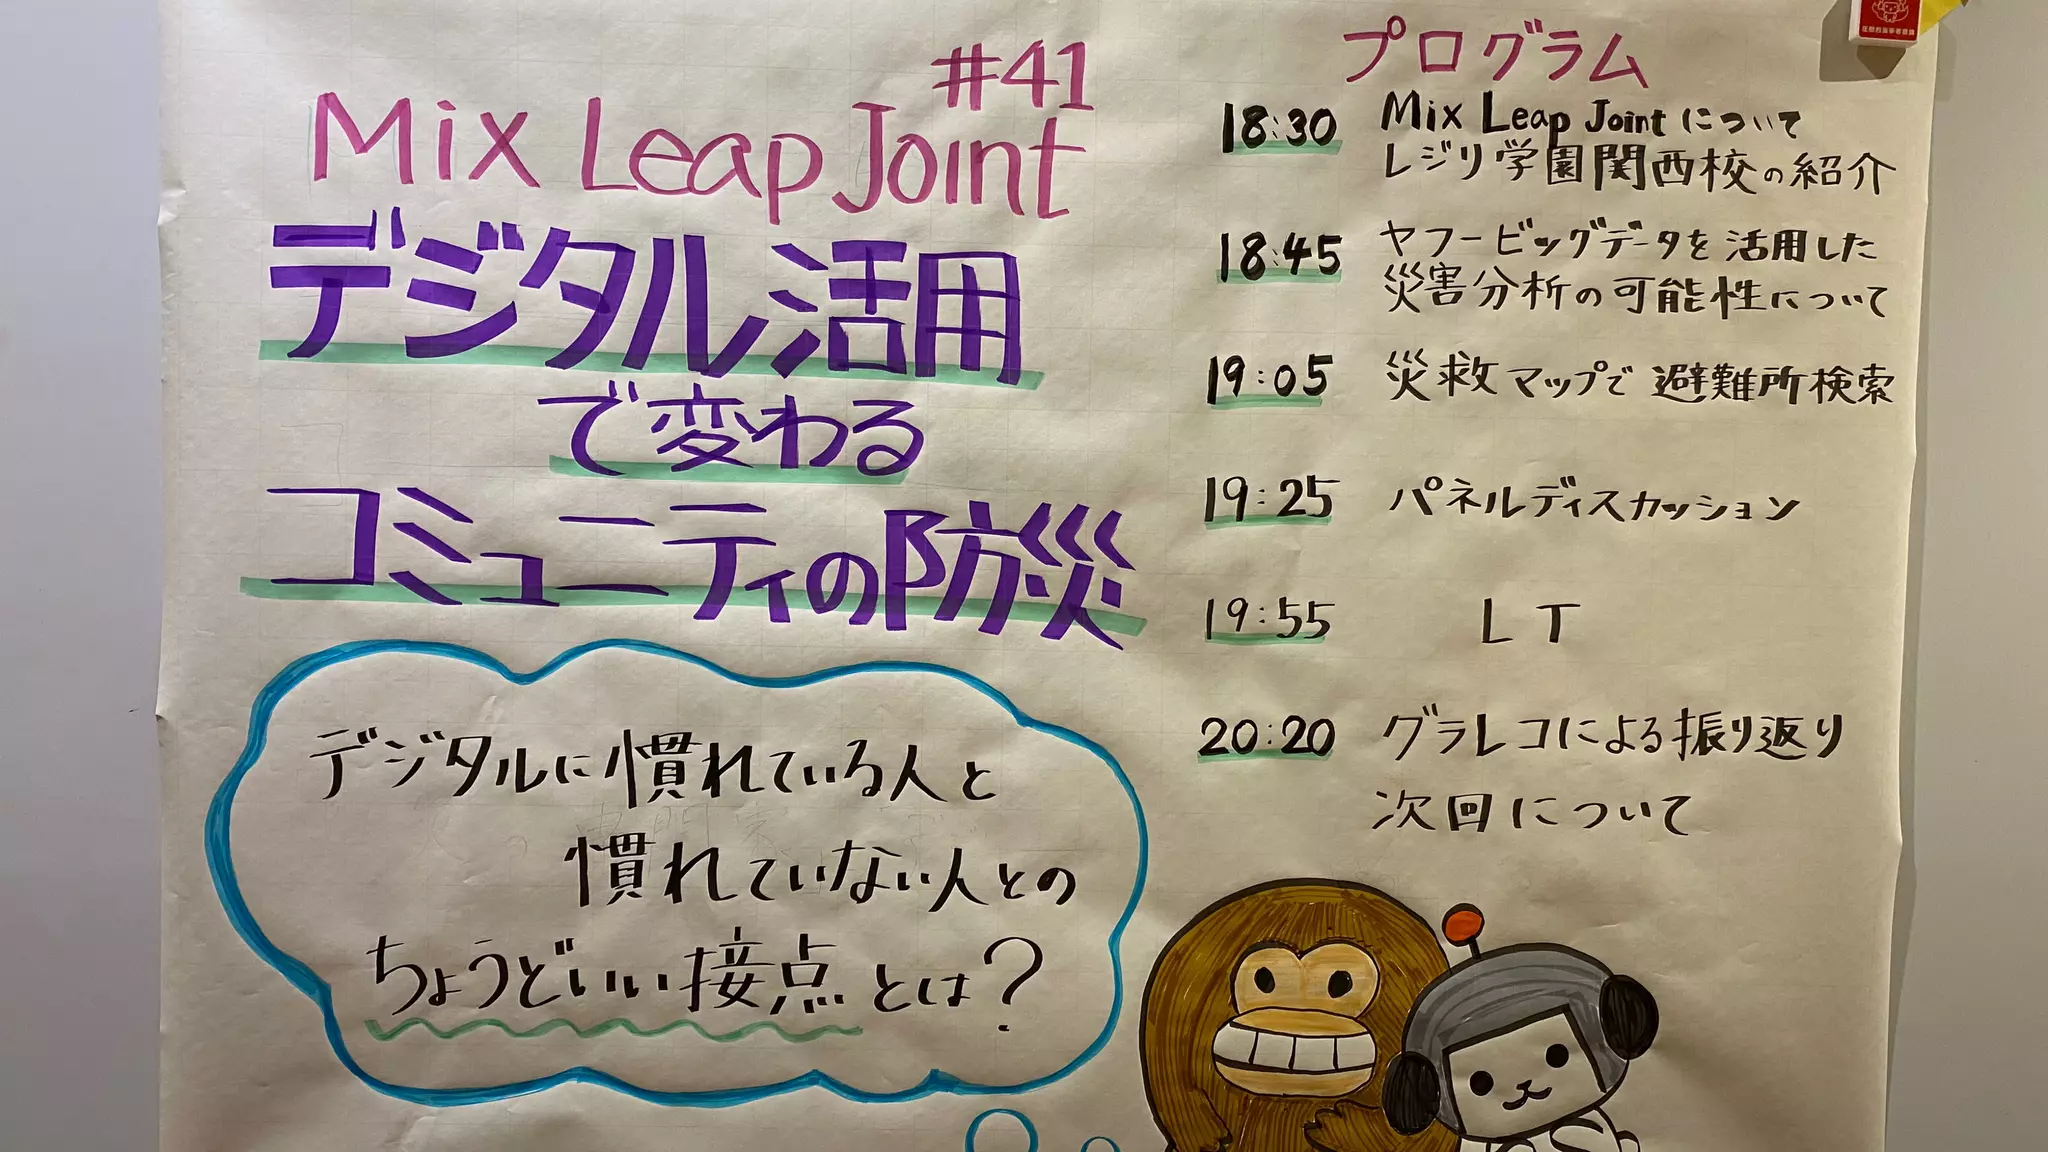 #41
Mix Leap Joint
デジタル活用
で変わる
コミュニティの防災
デジタルに慣れている人と
慣れていない人との
ちょうどいい接点とは?
プログラム
18:30 Mix Leap Jointについて
レジリ学園関西校の紹介
18:45 ヤフービッグデータを活用した
災害分析の可能性について
19:05 災救マップで避難所検索
19:25 パネルディスカッション
19:55 LT
20:20 グラレコによる振り返り
次回について